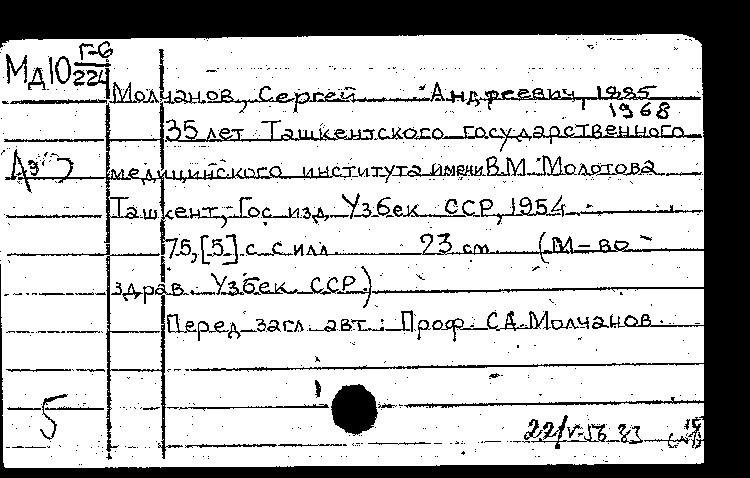 Мд10 Г-6
224
Молчанов, Сергей Андреевич, 1885
1968
35 лет Ташкентского государственного
медицинского института имени В.М. Молотова
Ташкент, Гос изд Узбек ССР, 1954
75,[5] с. с илл. 23 см (М-во
здрав. Узбек. ССР.)
Перед загл. авт.: Проф. С.А. Молчанов.
5
22/V-56 83